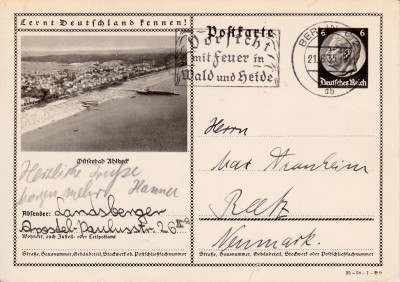 Lernt Deutschland kennen!
Postkarte
Vorsicht
mit Feuer in
Wald und Heide
BERLIN
21.6.35
6 6
Deutsches Reich
Ostseebad Ahlbeck
Herzliche Grüße
morgen mehr Hanner
Absender: Landsberger
Apostel-Paulusstr. 26
Wohnort, auch Zustell- oder Leitpostamt
Straße, Hausnummer, Gebäudeteil, Stockwerk od. Postschließfachnummer
Herrn
Max
Reetz
Neumark.
Straße, Hausnummer, Gebäudeteil, Stockwerk oder Postschließfachnummer